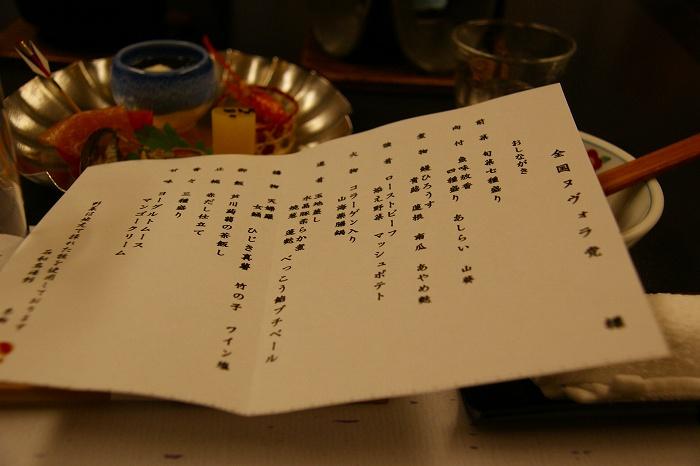 全国ヌヴォラ党 様
おしながき
前菜 旬菜七種盛り
向付 魚味放香 山葵
四種盛り あしらい
煮物 鰻ひろうす 蓮根 南瓜 あやめ麩
強肴 ローストビーフ
添え野菜 マッシュポテト
火物 コラーゲン入り
山海薬膳鍋
進肴 玉地蒸し
水晶豚柔らか煮
焼葱 蓬麩 べっこう餡プチベール
揚物 天婦羅
女鯒 ひじき真薯 竹の子 ワイン塩
御飯 蒟蒻の茶飯し
止椀 赤だし仕立て
香々 三種盛り
甘味 ヨーグルトムース
マンゴークリーム